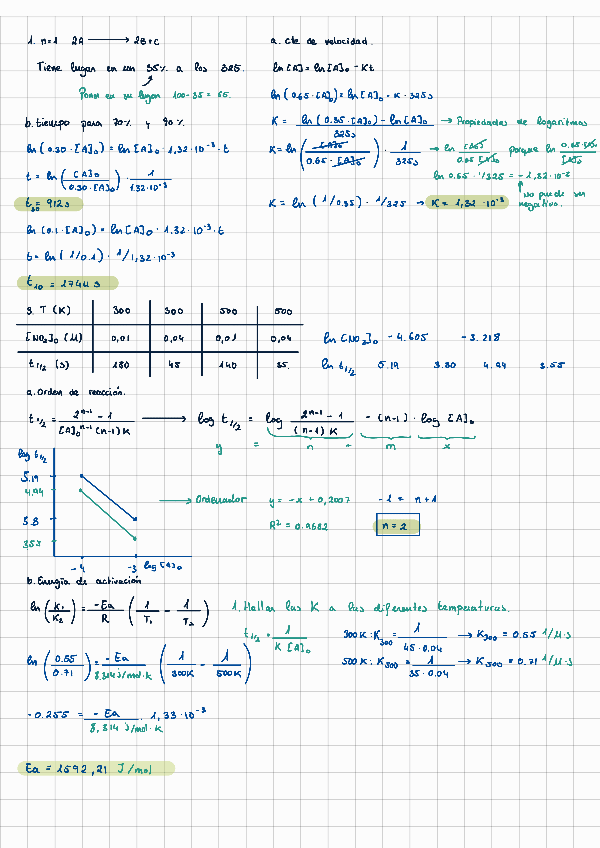 1. n=1 2A ⟶ 2B+C
Tiene lugar en un 35% a los 325.
Poner en su lugar 100-35 = 65.
a. cte de velocidad.
ln[A] = ln[A]₀ - Kt
ln(0.65·[A]₀) = ln[A]₀ - K·325s
K = ln(0.35·[A]₀) - ln[A]₀ / 325s → Propiedades de logaritmos
K = ln([A]₀ / 0.65·[A]₀) · 1/325s → ln [A]₀ / 0.65 [A]₀ porque ln 0.65·[A]₀ / [A]₀
ln 0.65 · 1/325 = -1,32·10⁻³
no puede ser negativo.
K = ln(1/0.35) · 1/325 → K = 1,32·10⁻³
b. tiempo para 70% y 90%.
ln(0.30·[A]₀) = ln[A]₀ · 1.32·10⁻³·t
t = ln([A]₀ / 0.30·[A]₀) · 1 / 1.32·10⁻³
t₃₀ = 912s
ln(0.1·[A]₀) = ln[A]₀ · 1.32·10⁻³·t
t = ln(1/0.1) · 1/1,32·10⁻³
t₁₀ = 1744s
3. T (K) 300 300 500 500
[NO₂]₀ (M) 0,01 0,04 0,01 0,04
t₁/₂ (s) 180 45 140 35.
ln [NO₂]₀ -4.605 -3.218
ln t₁/₂ 5.19 3.80 4.94 3.55
a. Orden de reacción.
t₁/₂ = 2ⁿ⁻¹ - 1 / [A]₀ⁿ⁻¹ (n-1) K ⟶ log t₁/₂ = log 2ⁿ⁻¹ - 1 / (n-1) K - (n-1) · log [A]₀
y = n + m x
log t₁/₂
5.19
4.94
5.8
3.55
-4 -3 log [A]₀
⟶ Ordenador y = -x + 0,2007 -1 = n+1
R² = 0.9682 n = 2
b. Energía de activación
ln(K₁/K₂) = -Ea/R (1/T₁ - 1/T₂)
1. Hallar las K a las diferentes temperaturas.
t₁/₂ = 1 / K [A]₀
300K: K₃₀₀ = 1 / 45·0.04 → K₃₀₀ = 0.55 1/M·s
500K: K₅₀₀ = 1 / 35·0.04 → K₅₀₀ = 0.71 1/M·s
ln(0.55/0.71) = -Ea / 8.314 J/mol·K (1/300K - 1/500K)
-0.255 = -Ea / 8,314 J/mol·K · 1,33·10⁻³
Ea = 1592,21 J/mol